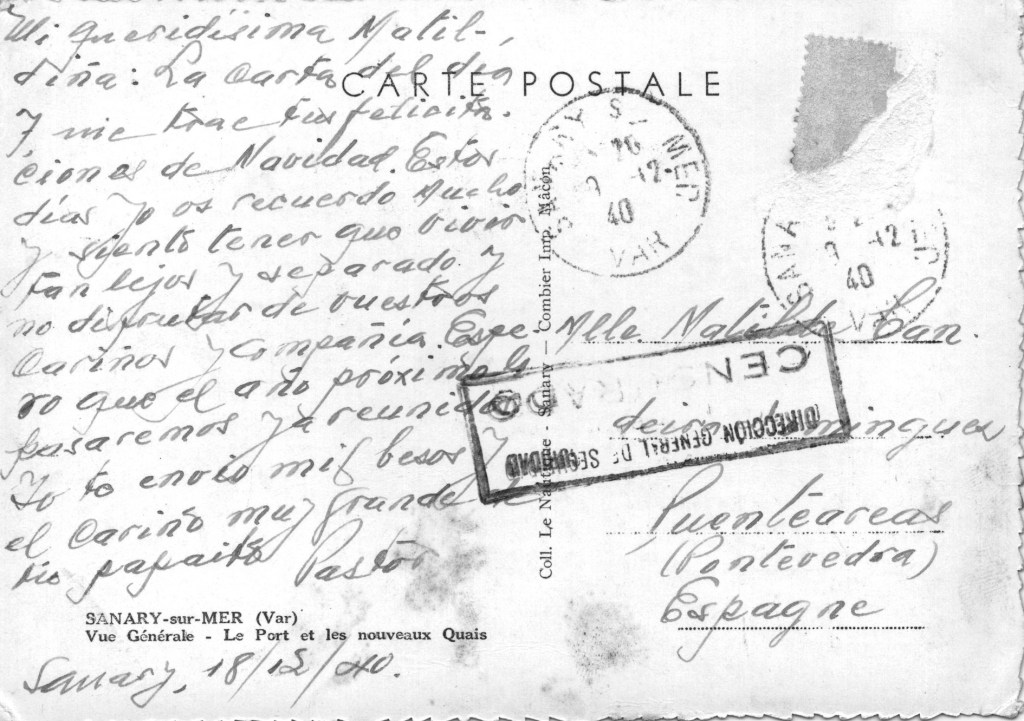 Mi queridísima Matil-
diña: La carta del día
7 me trae tus felicita-
ciones de Navidad. Estos
días yo os recuerdo mucho
y siento tener que vivir
tan lejos y separado y
no disfrutar de vuestros
cariños y compañía. Espe-
ro que el año próximo lo
pasaremos ya reunidos
Yo te envío mil besos y
el cariño muy grande de
tu papaito Pastor
SANARY-sur-MER (Var)
Vue Générale - Le Port et les nouveaux Quais
Sanary, 18/12/40.
CARTE POSTALE
Coll. Le Nautique - Sanary - Combier Imp. Mâcon
SANARY S/ MER
26
12-
40
VAR
SANA
12
40
VAR
CENSURADO
DIRECCIÓN GENERAL DE SEGURIDAD
Mlle Matilde Can.
deira Dominguez
Puenteareas
(Pontevedra)
Espagne